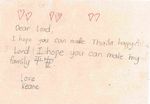 Dear Lord,
I hope you can make Thada happy.
Lord I hope you can make my
family 平安
Love
Keane